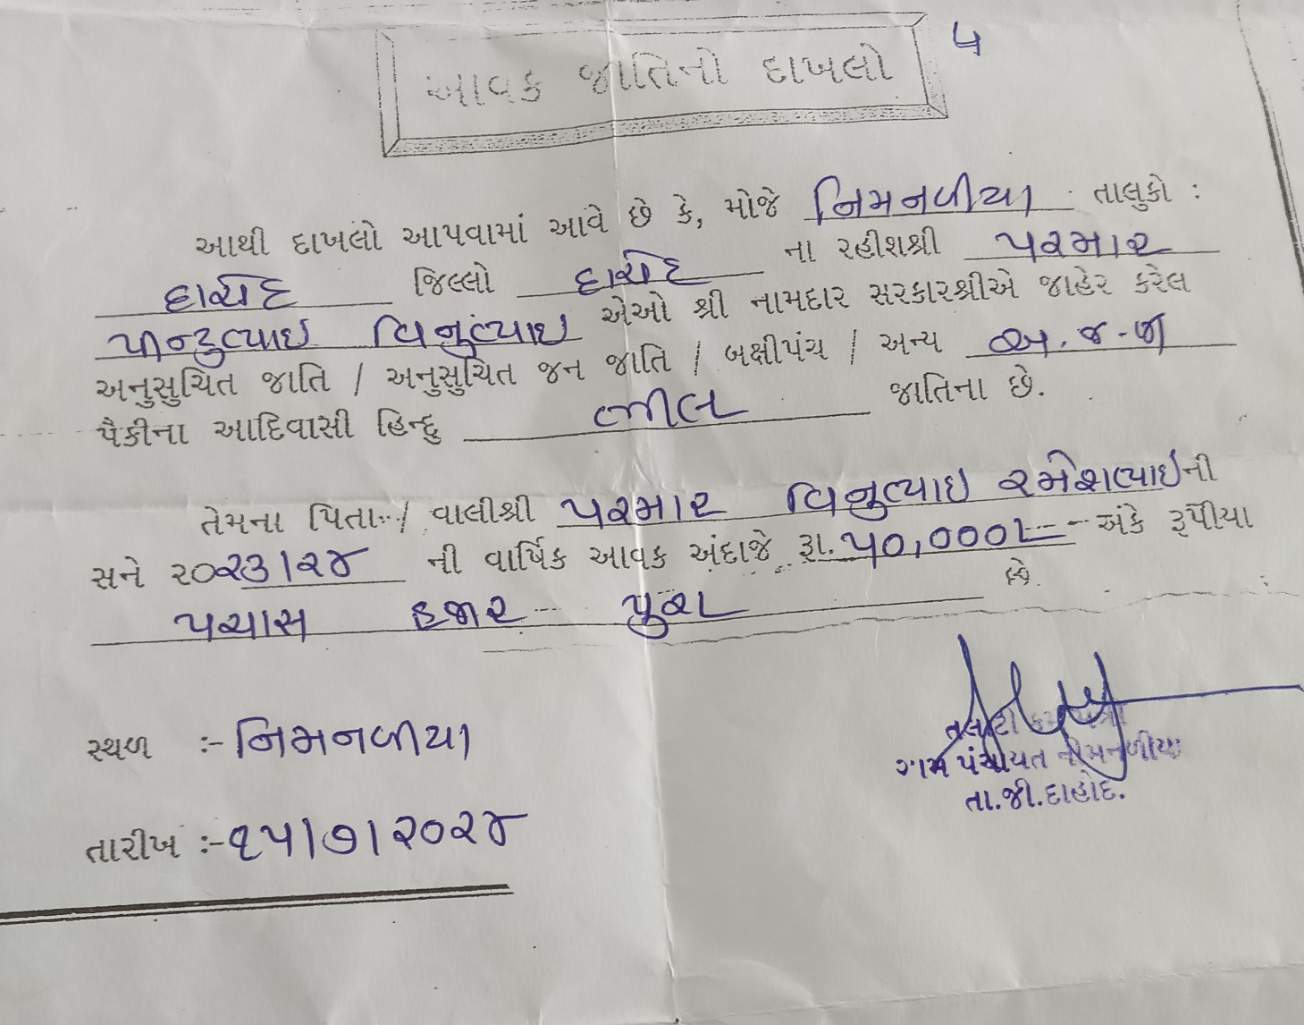 ૫
આવક જાતિનો દાખલો
આથી દાખલો આપવામાં આવે છે કે, મોજે નિમનળીયા તાલુકો :
દાહોદ જિલ્લો દાહોદ ના રહીશશ્રી પરમાર
પીન્ટુભાઇ વિનુભાઇ એઓ શ્રી નામદાર સરકારશ્રીએ જાહેર કરેલ
અનુસુચિત જાતિ / અનુસુચિત જન જાતિ / બક્ષીપંચ / અન્ય અ.જ-જા
પૈકીના આદિવાસી હિન્દુ ભીલ જાતિના છે.
તેમના પિતા:-/ વાલીશ્રી પરમાર વિનુભાઇ રમેશભાઇની
સને ૨૦૨૩/૨૪ ની વાર્ષિક આવક અંદાજે રૂા. ૫૦,૦૦૦/- અંકે રૂપીયા
પચાસ હજાર પુરા છે.
સ્થળ :- નિમનળીયા
તારીખ :- ૧૫/૭/૨૦૨૪
ગ્રામ પંચાયત નીમનળીયા
તા.જી.દાહોદ.